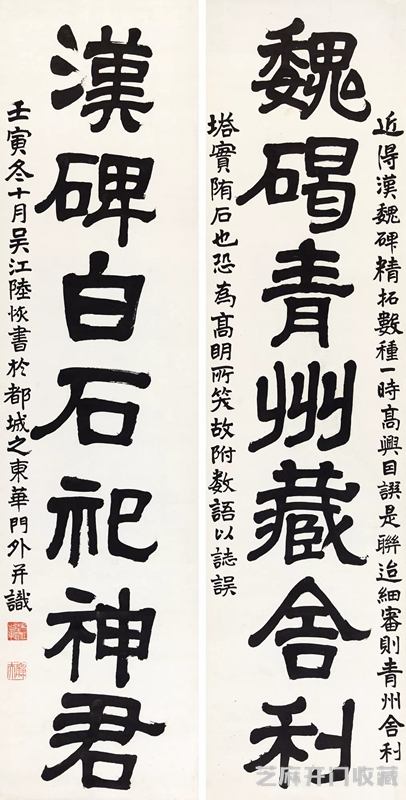 近得漢魏碑精拓數種一時高興自譔是聯迨細審則青州舍利
魏碣青州藏舍利
塔實陏石也恐為高明所笑故附数語以誌誤
漢碑白石祀神君
壬寅冬十月吳江陸恢書於都城之東華門外并識
芝麻开门收藏